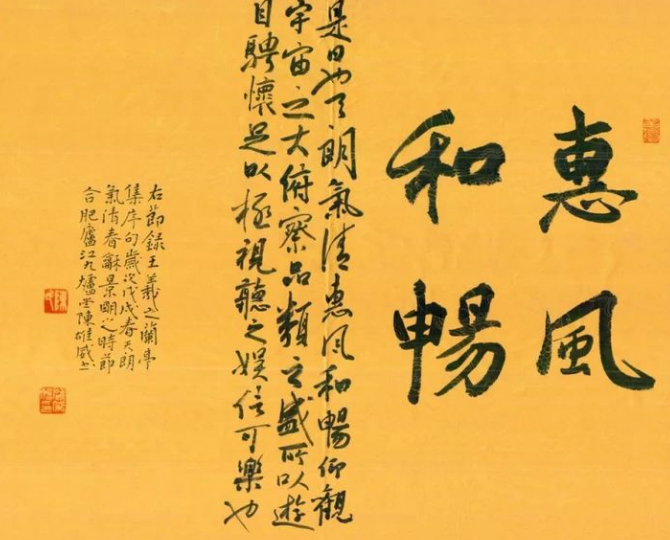 惠風
和暢
是日也天朗氣清惠風和暢仰觀
宇宙之大俯察品類之盛所以遊
目騁懷足以極視聽之娛信可樂也
右節錄王羲之蘭亭
集序句歲次戊戌春天朗
氣清春龢景明之時節
合肥廬江九爐堂陳雄威書